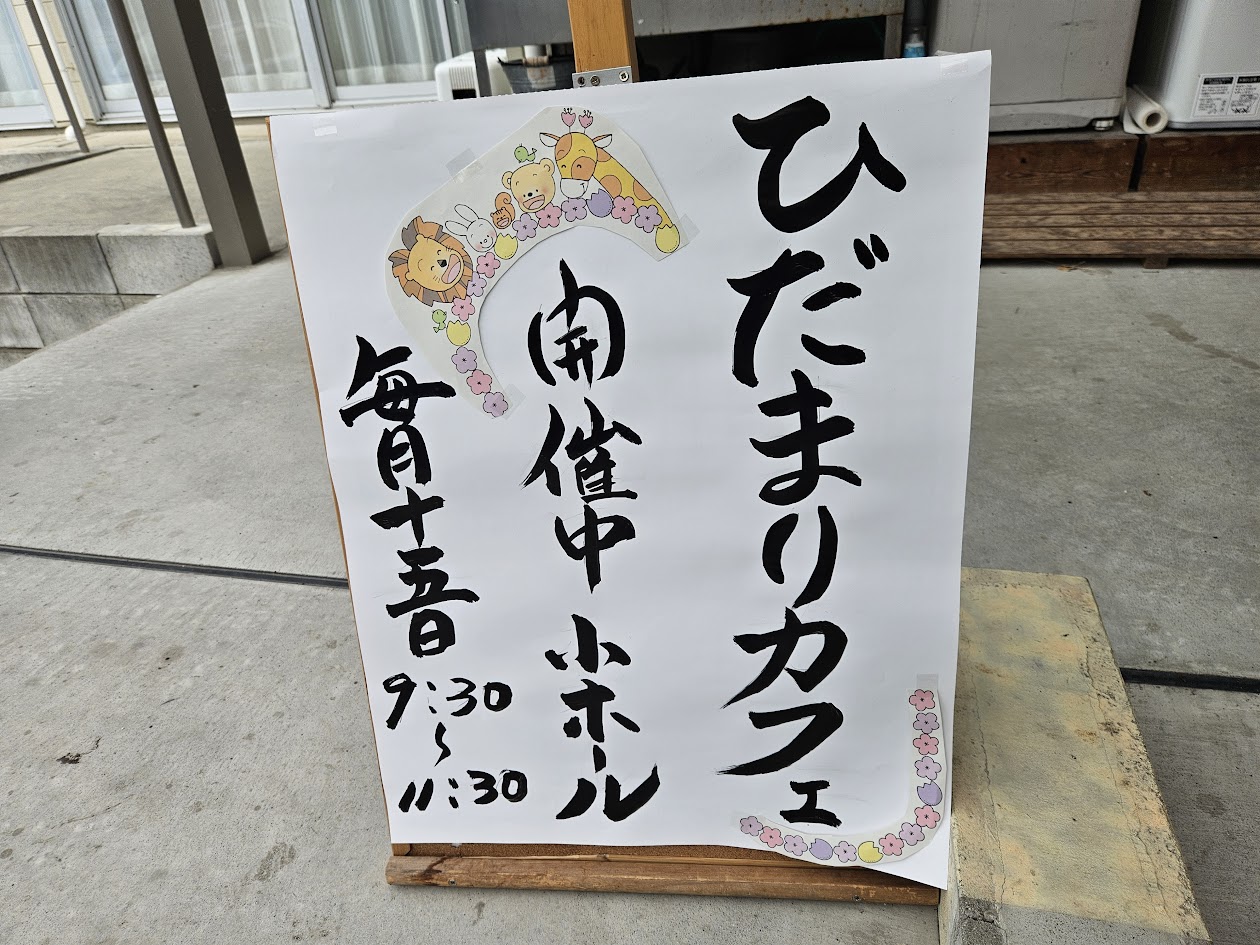 ひだまりカフェ
開催中 小ホール
毎月十五日
9:30
〜
11:30